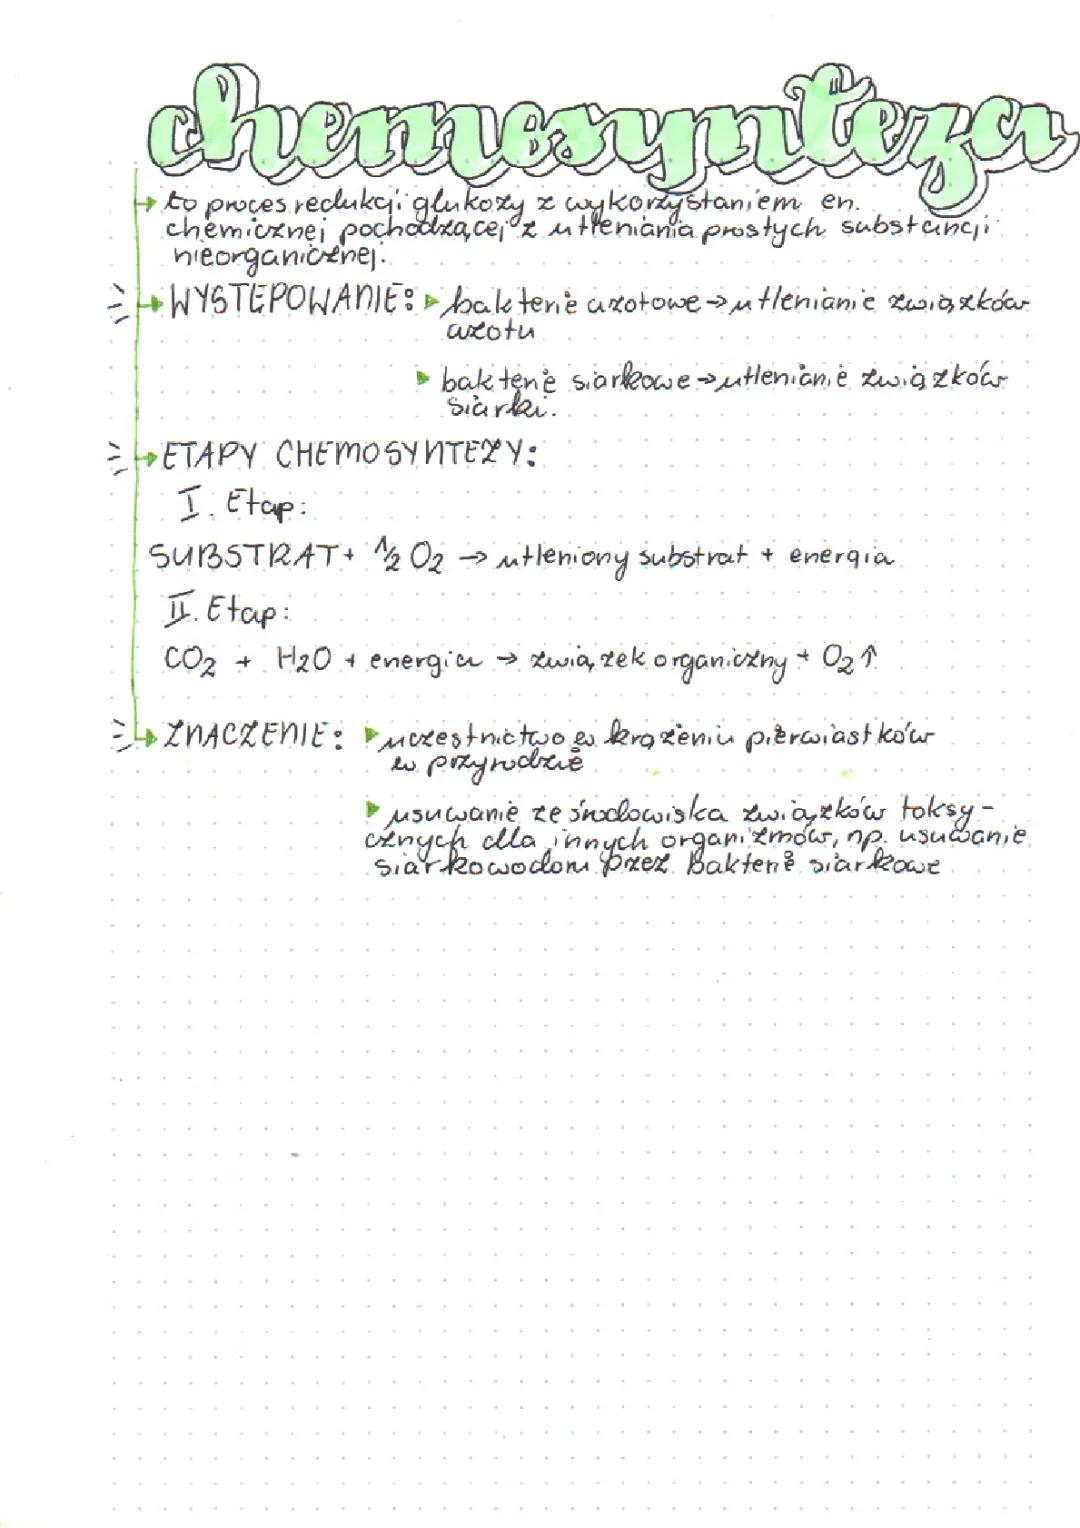 chemosynteza
to proces redukcji glukozy z wykorzystaniem en.
chemicznej pochodzącej z utleniania prostych substancji
nieorganicznej.
WYSTĘPOWANIE: bakterie azotowe → utlenianie związków
azotu
bakterie siarkowe → utlenianie związków
siarki.
ETAPY CHEMOSYNTEZY:
I. Etap:
SUBSTRAT + ½ O2 → utleniony substrat + energia
II. Etap:
CO2 + H2O + energia → związek organiczny + O2↑
ZNACZENIE: uczestnictwo w krążeniu pierwiastków
w przyrodzie
usuwanie ze środowiska związków toksy-
cznych dla innych organizmów, np. usuwanie
siarkowodoru przez bakterie siarkowe